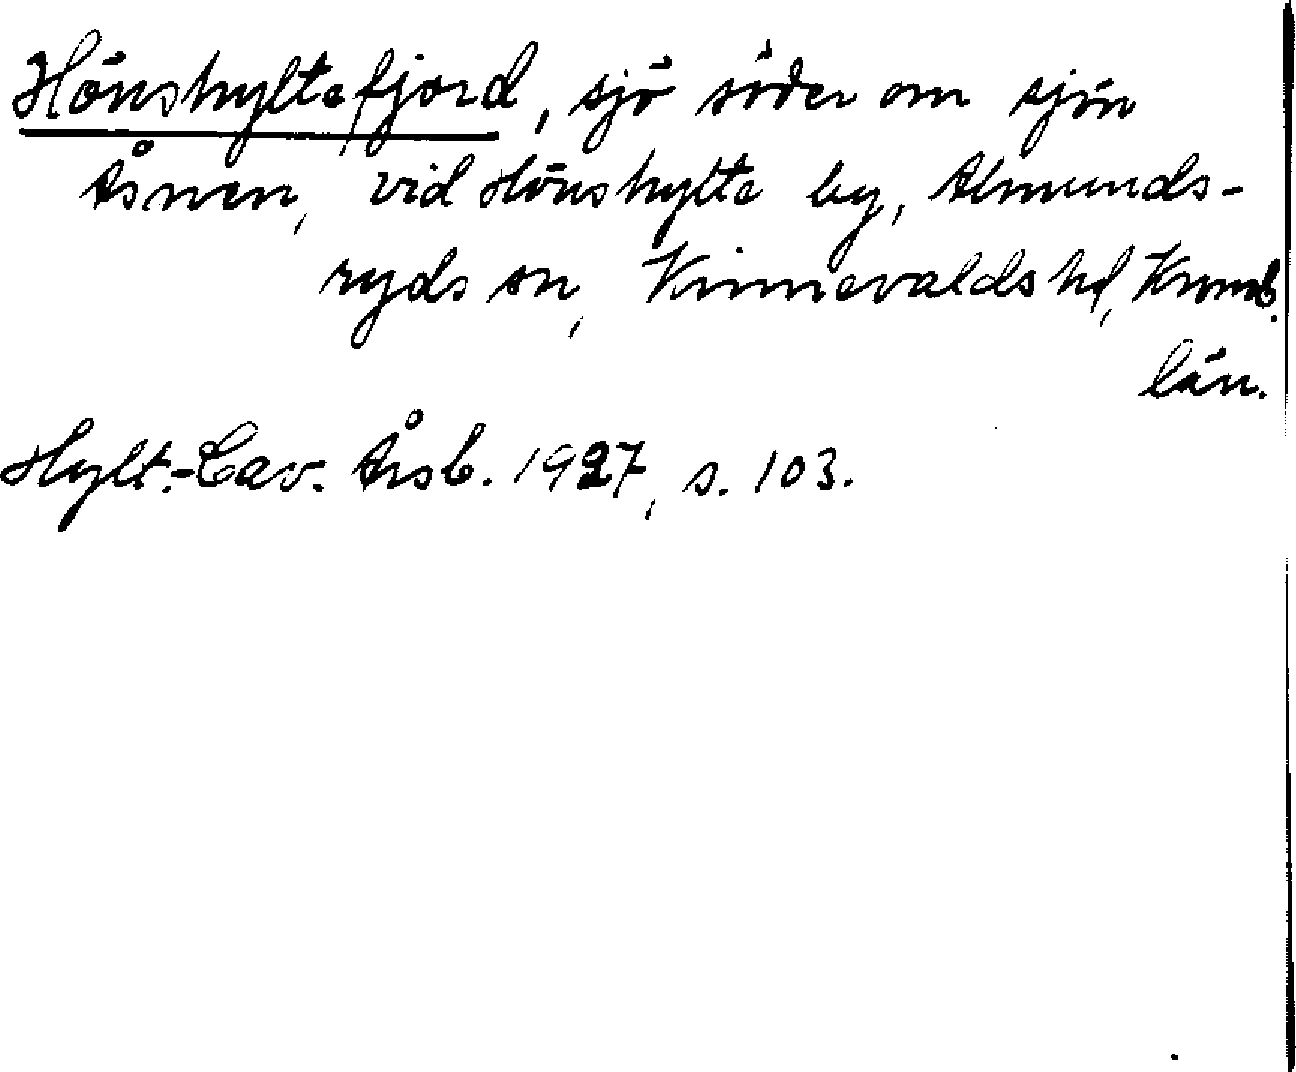 Hönshyltefjord, sjö söder om sjön
Åsnen, vid Hönshylte by, Almunds-
ryds sn, Kinnevalds hd, Kronob.
län.
Hylt.-Cav. Årsb. 1927, s. 103.